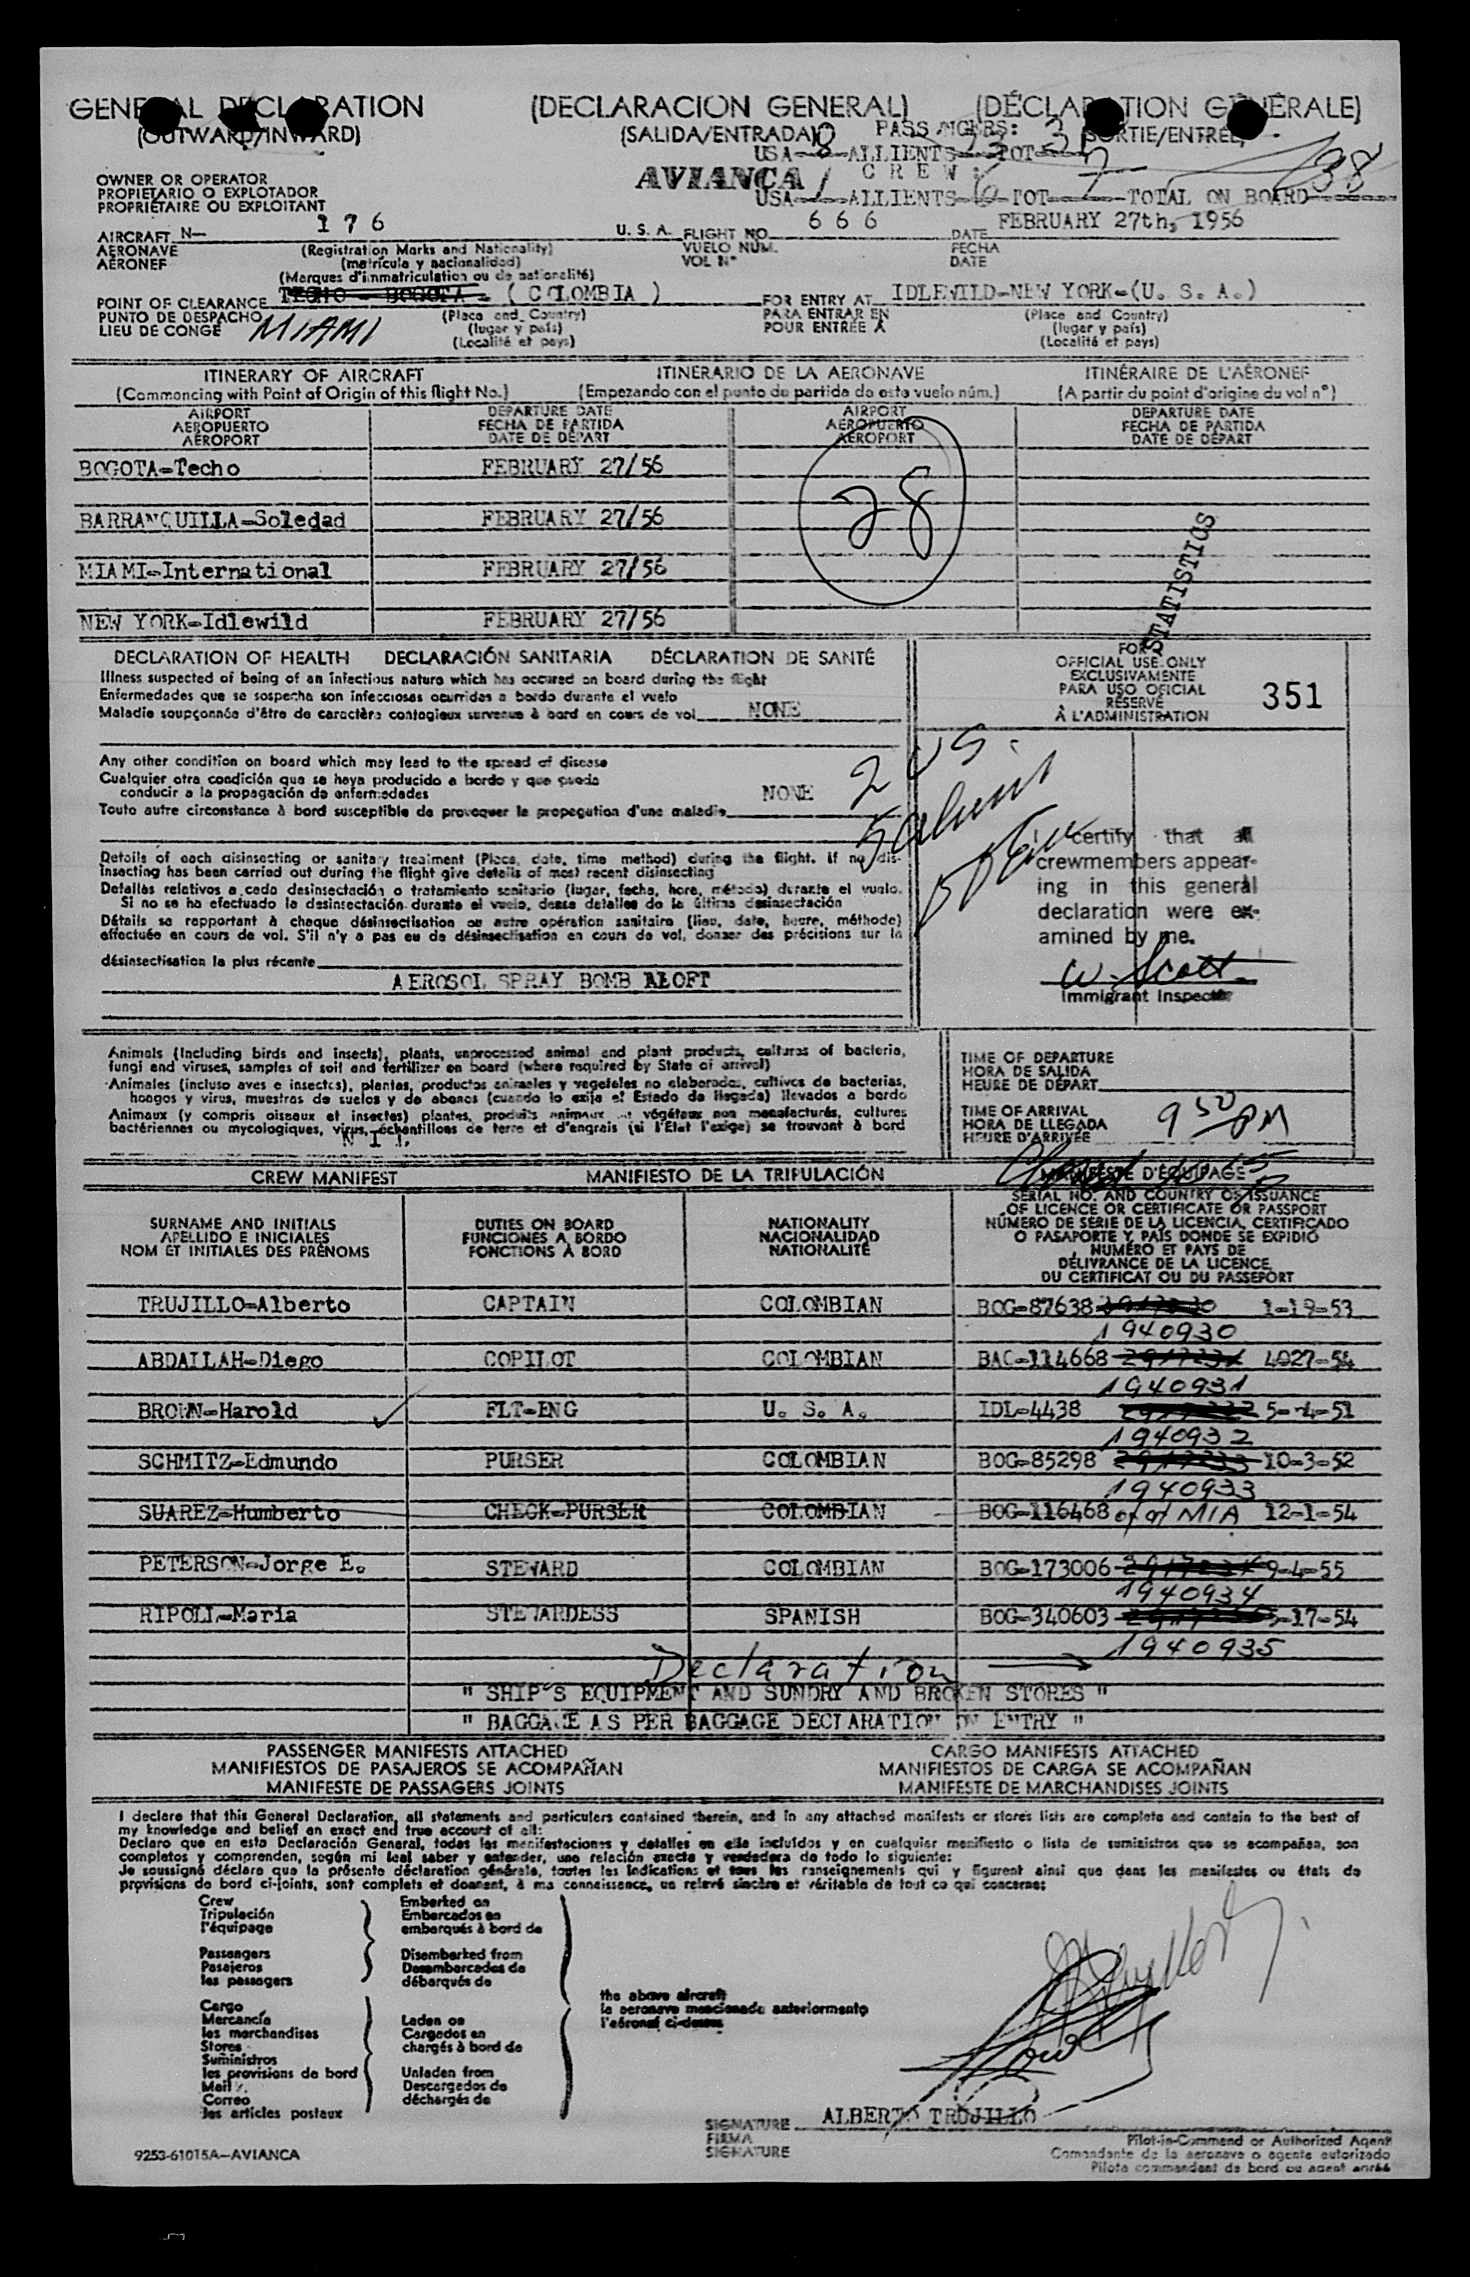 GENERAL DECLARATION (DECLARACION GENERAL) (DÉCLARATION GÉNÉRALE)
(OUTWARD/INWARD) (SALIDA/ENTRADA) (SORTIE/ENTRÉE)
PASSANGERS:
USA 8 ALLIENTS TOT
OWNER OR OPERATOR AVIANCA CREW:
PROPIETARIO O EXPLOTADOR USA 1 ALLIENTS 6 TOT 7 TOTAL ON BOARD 38
PROPRIÉTAIRE OU EXPLOITANT
AIRCRAFT N— 176 U. S. A. FLIGHT NO. 666 DATE FEBRUARY 27th, 1956
AERONAVE (Registration Marks and Nationality) VUELO NÚM. FECHA
AÉRONEF (matrícula y nacionalidad) VOL N° DATE
(Marques d'immatriculation ou de nationalité)
POINT OF CLEARANCE TECHO - BOGOTA - ( COLOMBIA ) FOR ENTRY AT IDLEWILD-NEW YORK-(U. S. A.)
PUNTO DE DESPACHO MIAMI (Place and Country) PARA ENTRAR EN (Place and Country)
LIEU DE CONGÉ (lugar y país) POUR ENTRÉE À (lugar y país)
(Localité et pays) (Localité et pays)
ITINERARY OF AIRCRAFT ITINERARIO DE LA AERONAVE ITINÉRAIRE DE L'AÉRONEF
(Commencing with Point of Origin of this flight No.) (Empezando con el punto de partida de este vuelo núm.) (A partir du point d'origine du vol n°)
AIRPORT DEPARTURE DATE AIRPORT DEPARTURE DATE
AEROPUERTO FECHA DE PARTIDA AEROPUERTO FECHA DE PARTIDA
AÉROPORT DATE DE DÉPART AÉROPORT DATE DE DÉPART
BOGOTA-Techo FEBRUARY 27/56
28
BARRANQUILLA-Soledad FEBRUARY 27/56
MIAMI-International FEBRUARY 27/56
NEW YORK-Idlewild FEBRUARY 27/56
STATISTICS
DECLARATION OF HEALTH DECLARACIÓN SANITARIA DÉCLARATION DE SANTÉ
FOR
OFFICIAL USE ONLY
EXCLUSIVAMENTE
PARA USO OFICIAL
RÉSERVÉ
À L'ADMINISTRATION
351
Illness suspected of being of an infectious nature which has occured on board during the flight
Enfermedades que se sospecha son infecciosas ocurridas a bordo durante el vuelo
Maladie soupçonnée d'être de caractère contagieux survenue à bord en cours de vol NONE
Any other condition on board which may lead to the spread of disease
Cualquier otra condición que se haya producido a bordo y que pueda
conducir a la propagación de enfermedades NONE
Toute autre circonstance à bord susceptible de provoquer la propagation d'une maladie
2 US.
Details of each disinsecting or sanitary treatment (Place, date, time method) during the flight. If no dis-
insecting has been carried out during the flight give details of most recent disinsecting
Detalles relativos a cada desinsectación o tratamiento sanitario (lugar, fecha, hora, método) durante el vuelo.
Si no se ha efectuado la desinsectación durante el vuelo, dense detalles de la última desinsectación
Détails se rapportant à chaque désinsectisation ou autre opération sanitaire (lieu, date, heure, méthode)
effectuée en cours de vol. S'il n'y a pas eu de désinsectisation en cours de vol, donner des précisions sur la
désinsectisation la plus récente
AEROSOL SPRAY BOMB ALOFT
I certify that all
crewmembers appear-
ing in this general
declaration were ex-
amined by me.
W. Scott
Immigrant Inspector
Animals (Including birds and insects), plants, unprocessed animal and plant products, cultures of bacteria,
fungi and viruses, samples of soil and fertilizer on board (where required by State of arrival)
Animales (incluso aves e insectos), plantas, productos animales y vegetales no elaborados, cultivos de bacterias,
hongos y virus, muestras de suelos y de abonos (cuando lo exija el Estado de llegada) llevados a bordo
Animaux (y compris oiseaux et insectes) plantes, produits animaux et végétaux non manufacturés, cultures
bactériennes ou mycologiques, virus, échantillons de terre et d'engrais (si l'Etat l'exige) se trouvant à bord
TIME OF DEPARTURE
HORA DE SALIDA
HEURE DE DÉPART
TIME OF ARRIVAL
HORA DE LLEGADA
HEURE D'ARRIVÉE
9 50 PM
CREW MANIFEST MANIFIESTO DE LA TRIPULACIÓN MANIFESTE D'ÉQUIPAGE
SURNAME AND INITIALS
APELLIDO E INICIALES
NOM ET INITIALES DES PRÉNOMS
DUTIES ON BOARD
FUNCIONES A BORDO
FONCTIONS À BORD
NATIONALITY
NACIONALIDAD
NATIONALITÉ
SERIAL NO. AND COUNTRY OF ISSUANCE
OF LICENCE OR CERTIFICATE OR PASSPORT
NÚMERO DE SERIE DE LA LICENCIA, CERTIFICADO
O PASAPORTE Y PAÍS DONDE SE EXPIDIÓ
NUMÉRO ET PAYS DE
DÉLIVRANCE DE LA LICENCE,
DU CERTIFICAT OU DU PASSEPORT
TRUJILLO-Alberto CAPTAIN COLOMBIAN BOG-87638 1-19-53
1940930
ABDALLAH-Diego COPILOT COLOMBIAN BAC-114668 4027-54
1940931
BROWN-Harold FLT-ENG U. S. A. IDL-4438 5-4-51
1940932
SCHMITZ-Edmundo PURSER COLOMBIAN BOG-85298 10-3-52
1940933
SUAREZ-Humberto CHECK-PURSER COLOMBIAN BOG-116468 MIA 12-1-54
PETERSON-Jorge E. STEWARD COLOMBIAN BOG-173006 9-4-55
1940934
RIPOLL-Maria STEWARDESS SPANISH BOG-340603 5-17-54
1940935
Declaration
" SHIP'S EQUIPMENT AND SUNDRY AND BROKEN STORES "
" BAGGAGE AS PER BAGGAGE DECLARATION ON ENTRY "
PASSENGER MANIFESTS ATTACHED CARGO MANIFESTS ATTACHED
MANIFIESTOS DE PASAJEROS SE ACOMPAÑAN MANIFIESTOS DE CARGA SE ACOMPAÑAN
MANIFESTE DE PASSAGERS JOINTS MANIFESTE DE MARCHANDISES JOINTS
I declare that this General Declaration, all statements and particulars contained therein, and in any attached manifests or stores lists are complete and contain to the best of
my knowledge and belief an exact and true account of all:
Declaro que en esta Declaración General, todas las manifestaciones y detalles en ella incluídos y en cualquier manifiesto o lista de suministros que se acompañan, son
completos y comprenden, según mi leal saber y entender, una relación exacta y verdadera de todo lo siguiente:
Je soussigné déclare que la présente déclaration générale, toutes les indications et tous les renseignements qui y figurent ainsi que dans les manifestes ou états de
provisions de bord ci-joints, sont complets et donnent, à ma connaissance, un relevé sincère et véritable de tout ce qui concerne:
Crew
Tripulación
l'équipage
Passengers
Pasajeros
les passagers
Cargo
Mercancía
les marchandises
Stores
Suministros
les provisions de bord
Mail
Correo
les articles postaux
Embarked on
Embarcados en
embarqués à bord de
Disembarked from
Desembarcados de
débarqués de
Laden on
Cargados en
chargés à bord de
Unladen from
Descargados de
déchargés de
the above aircraft
la aeronave mencionada anteriormente
l'aéronef ci-dessus
SIGNATURE ALBERTO TRUJILLO
FIRMA
SIGNATURE
Pilot-in-Command or Authorized Agent
Comandante de la aeronave o agente autorizado
Pilote commandant de bord ou agent agréé
9253-61015A—AVIANCA